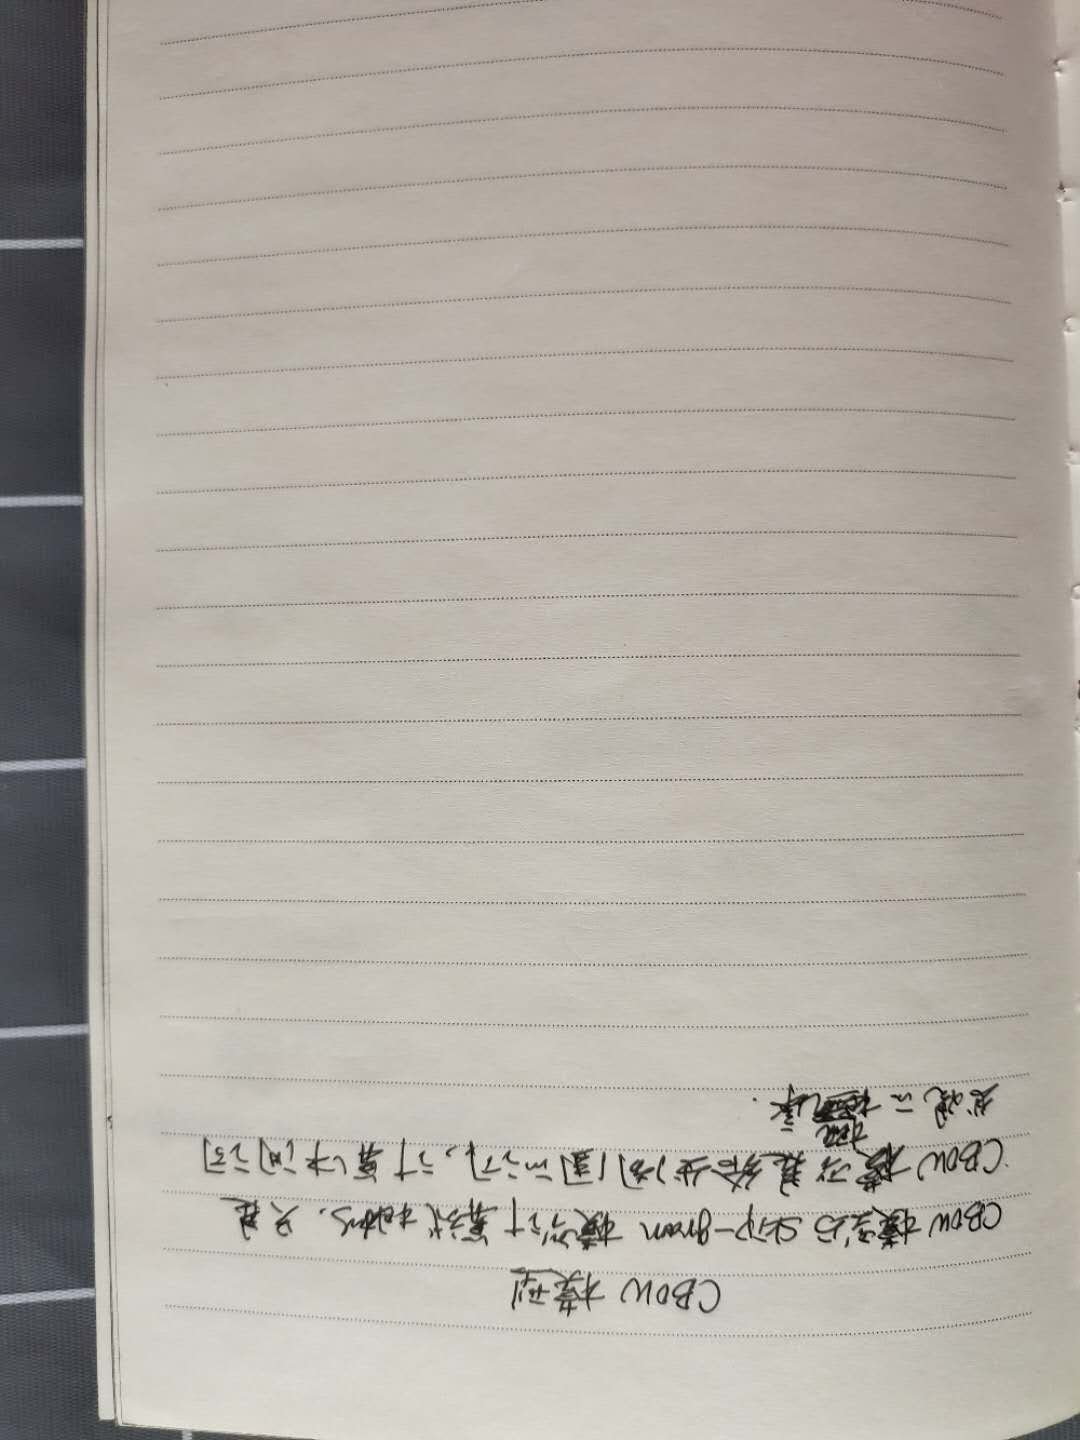 CBOW 模型
CBOW 模型与 skip-gram 模型计算式相似，只是
CBOW 模型是给出周围词，计算中间词
出现的概率.